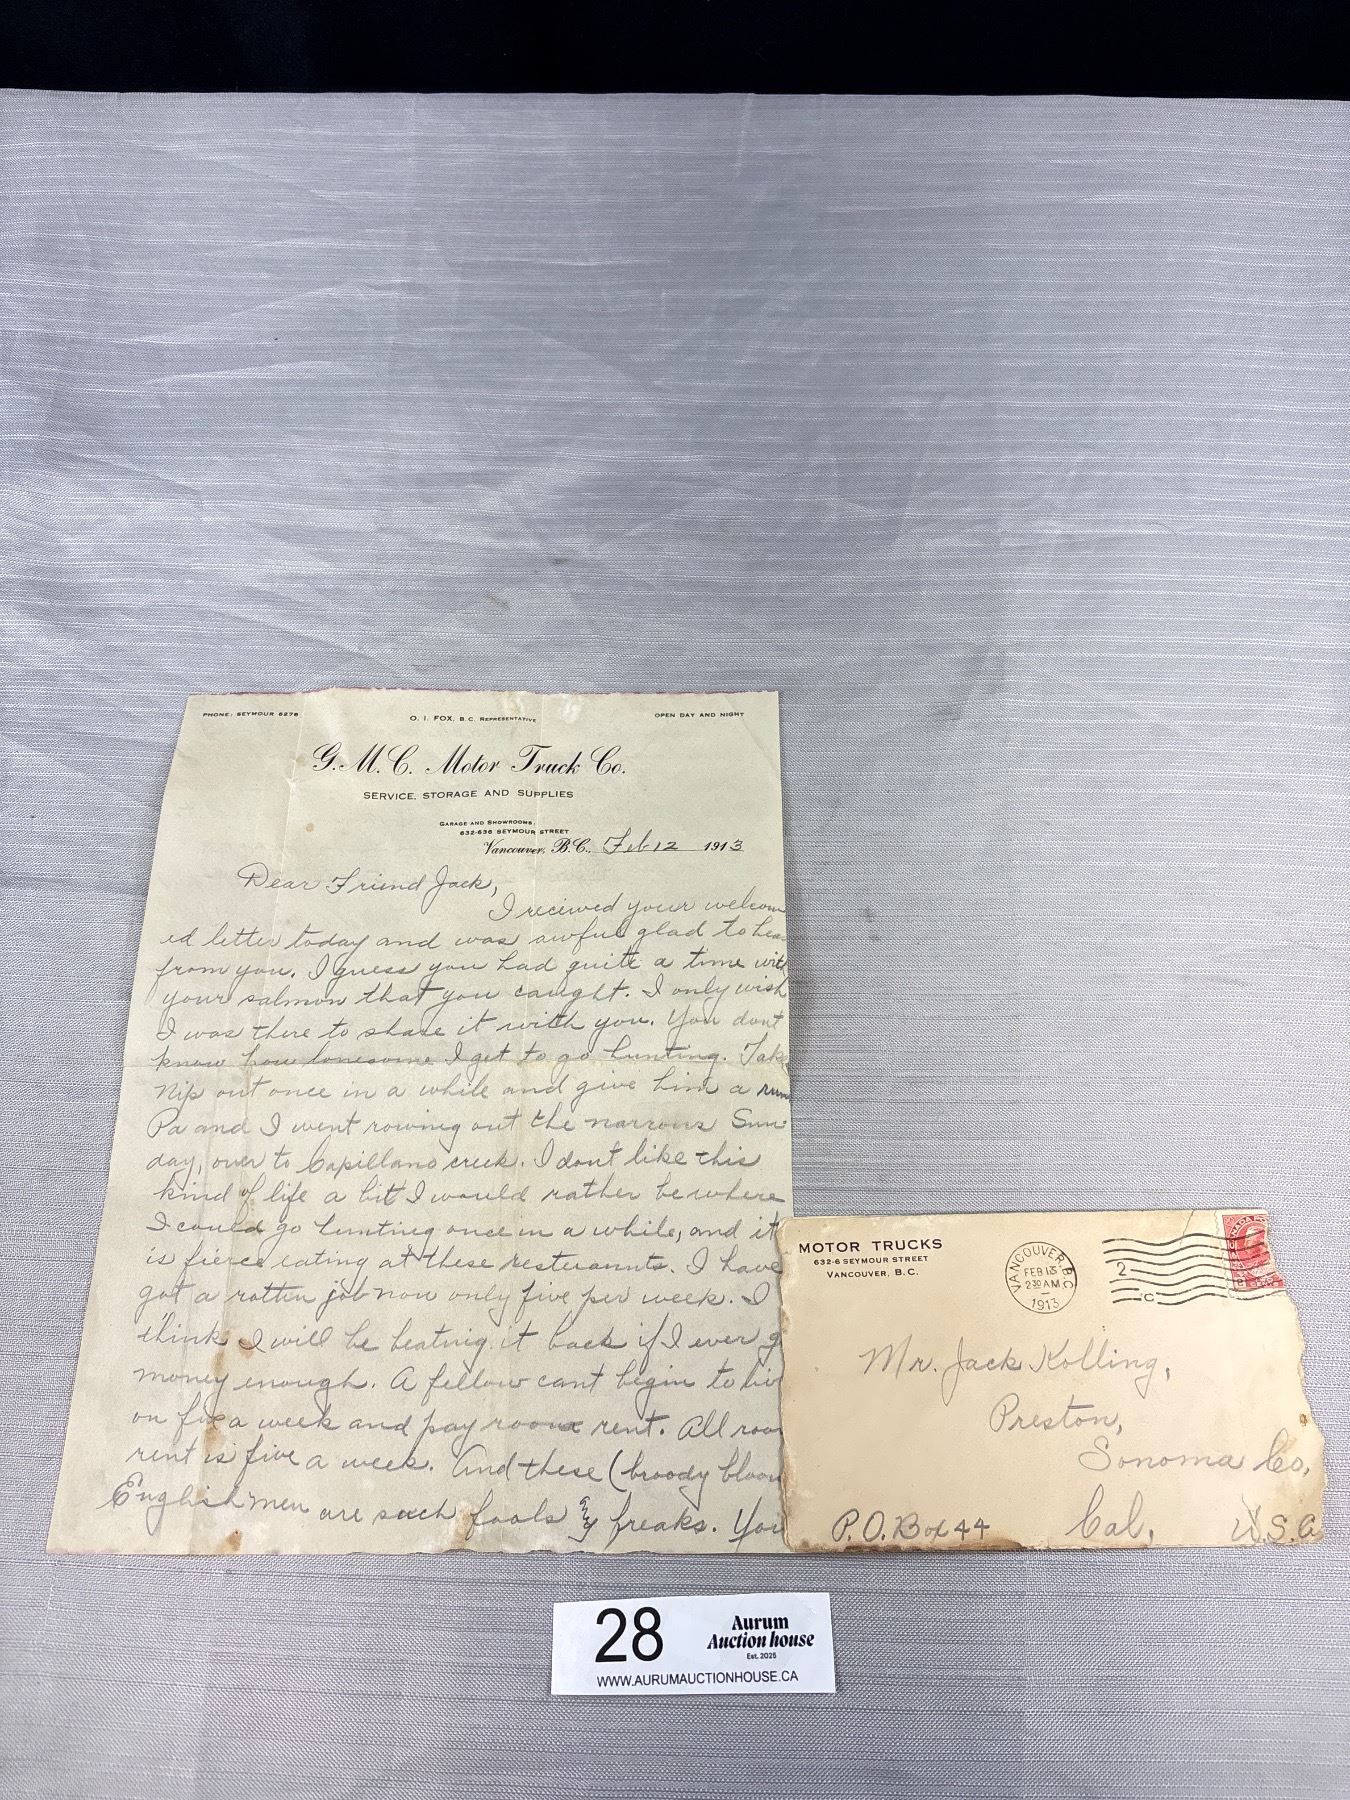 PHONE: SEYMOUR 6278
O. I. FOX, B.C. REPRESENTATIVE
OPEN DAY AND NIGHT
G. M. C. Motor Truck Co.
SERVICE, STORAGE AND SUPPLIES
GARAGE AND SHOWROOMS:
632-636 SEYMOUR STREET
Vancouver, B.C., Feb 12 1913
Dear Friend Jack,
I received your welcom
ed letter today and was awful glad to hear
from you. I guess you had quite a time with
your salmon that you caught. I only wish
I was there to share it with you. You dont
know how lonesome I get to go hunting. Take
Nip out once in a while and give him a run
Pa and I went rowing out the narrows Sun-
day, over to Capillano creek. I dont like this
kind of life a bit I would rather be where
I could go hunting once in a while, and it
is fierce eating at these resteraunts. I have
got a rotten job now only five per week. I
think I will be beating it back if I ever g
money enough. A fellow cant begin to liv
on five a week and pay room rent. All room
rent is five a week. And these (broody bloom
Englishmen are such fools & freaks. You
MOTOR TRUCKS
632-6 SEYMOUR STREET
VANCOUVER, B.C.
VANCOUVER B.C.
FEB 13
2 30 AM
1913
2
C
CANADA
2 CENTS
Mr. Jack Kolling,
Preston,
Sonoma Co,
P.O. Box 44 Cal, U.S.A
28
Aurum
Auction house
Est. 2025
WWW.AURUMAUCTIONHOUSE.CA